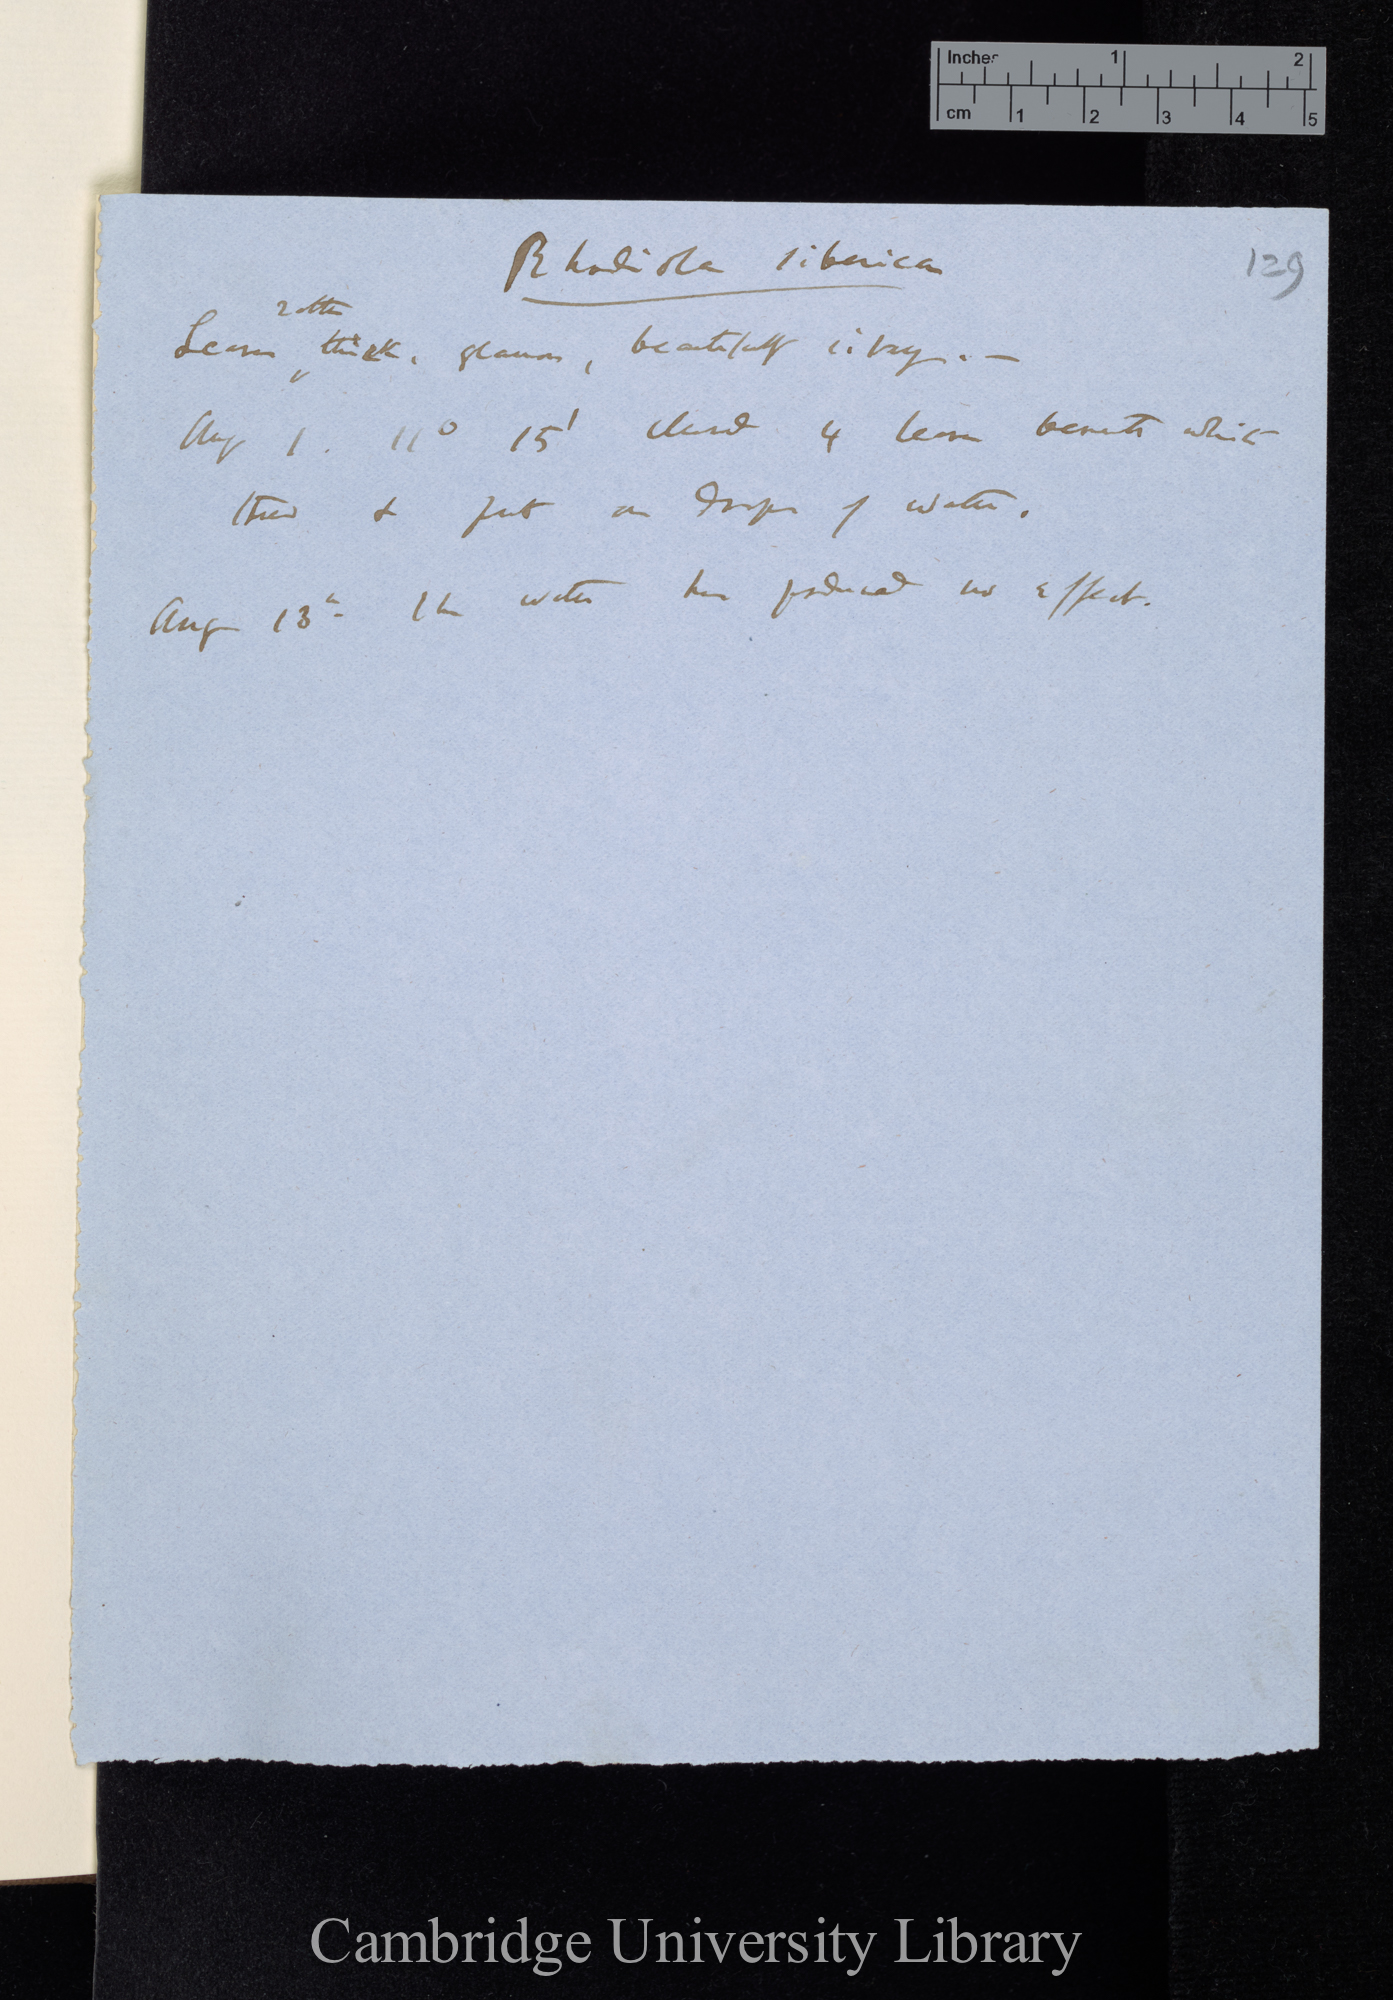 Inches 1 2
cm 1 2 3 4 5
Rhodiola siberica
129
rather
Leaves thick, glaucous, beautifully silvery. —
Aug 1. 11° 15' 4 leaves beneath which
& put on drops of water.
Aug 13th The water has produced no effect.
Cambridge University Library